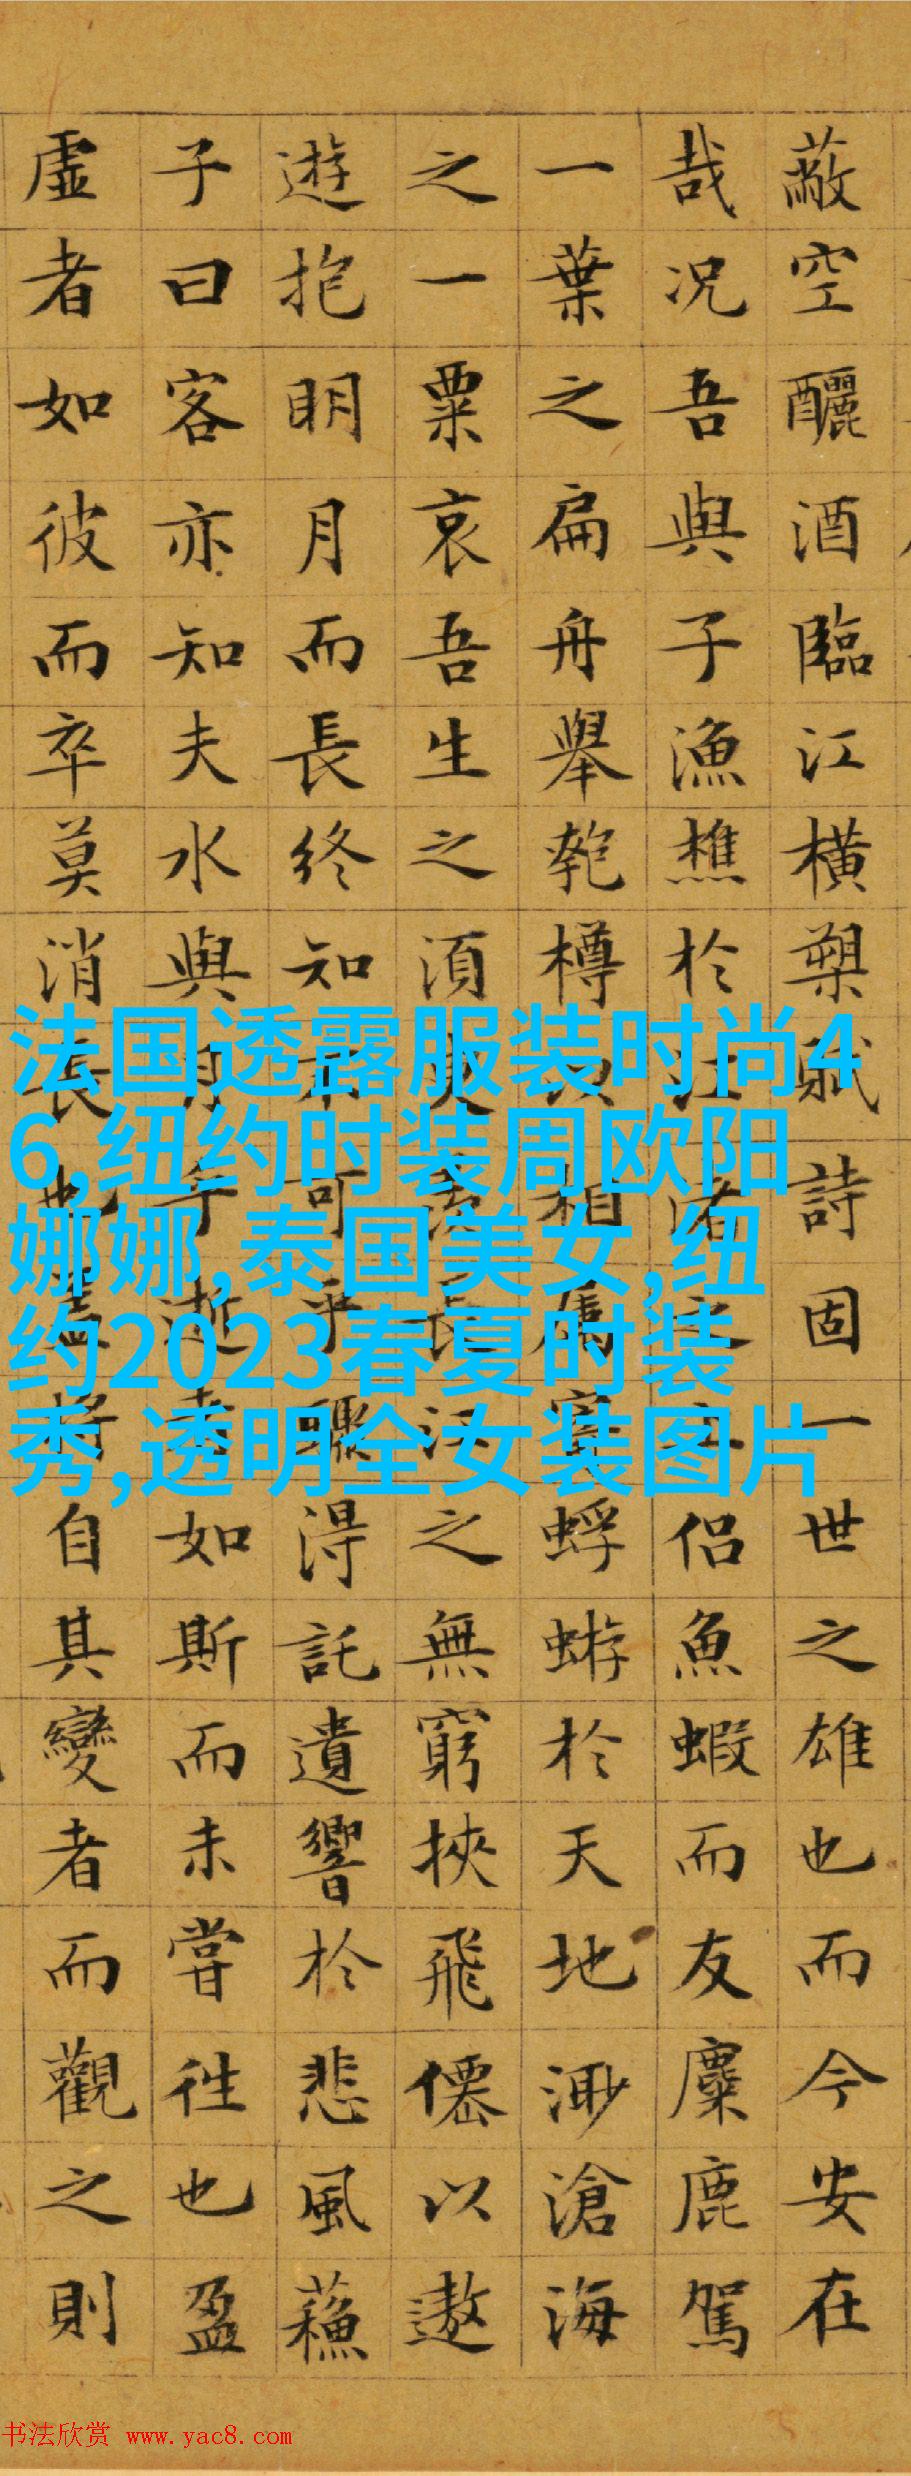 蔽空釃酒臨江橫槊賦詩固一世之雄也而今安在
哉况吾與子漁樵於江渚之上侶魚蝦而友麋鹿駕
一葉之扁舟舉匏樽以相屬寄蜉蝣於天地渺滄海
之一粟哀吾生之須臾羨長江之無窮挾飛僊以遨
遊抱明月而長終知不可乎驟得託遺響於悲風蘇
子曰客亦知夫水與月乎逝者如斯而未嘗往也盈
虛者如彼而卒莫消長也蓋將自其變者而觀之則
法国透露服装时尚4
6,纽约时装周欧阳
娜娜,泰国美女,纽
约2023春夏时装
秀,透明全女装图片
书法欣赏 www.yac8.com